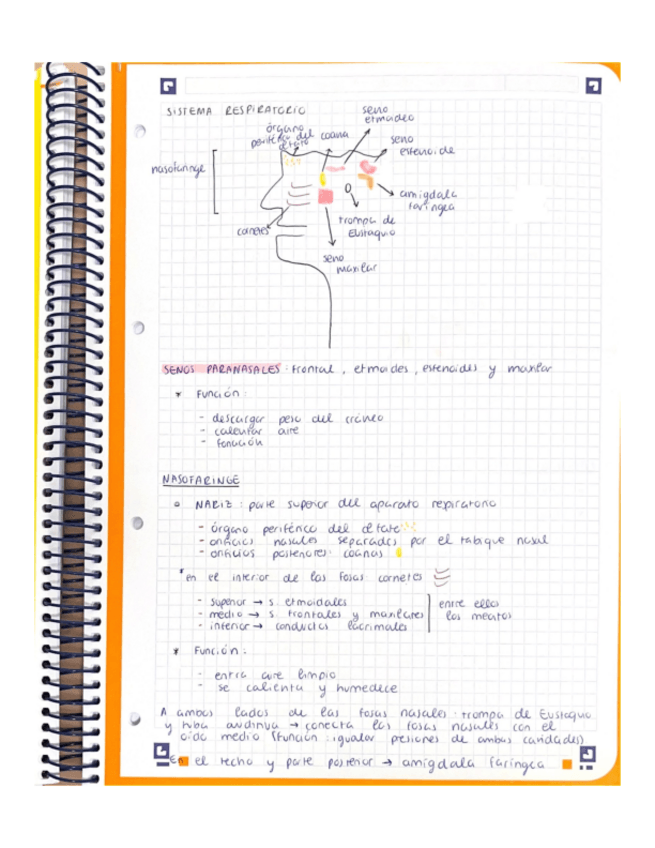 SISTEMA RESPIRATORIO
seno
etmoideo
órgano
periférico del
olfato
coana
seno
esfenoide
nasofaringe
amígdala
faríngea
trompa de
Eustaquio
cornetes
seno
maxilar
SENOS PARANASALES: frontal, etmoides, esfenoides y maxilar
* Función:
- descargar peso del cráneo
- calentar aire
- fonación
NASOFARINGE
o NARIZ: parte superior del aparato respiratorio
- órgano periférico del olfato
- orificios nasales separados por el tabique nasal
- orificios posteriores: coanas
*en el interior de las fosas: cornetes
- superior → s. etmoidales
- medio → s. frontales y maxilares
- inferior → conductos lacrimales
entre ellos
los meatos
* Función:
- entra aire limpio
- se calienta y humedece
A ambos lados de las fosas nasales: trompa de Eustaquio
y tuba auditiva → conecta las fosas nasales con el
oído medio (función: igualar presiones de ambas cavidades)
En el techo y parte posterior → amígdala faríngea